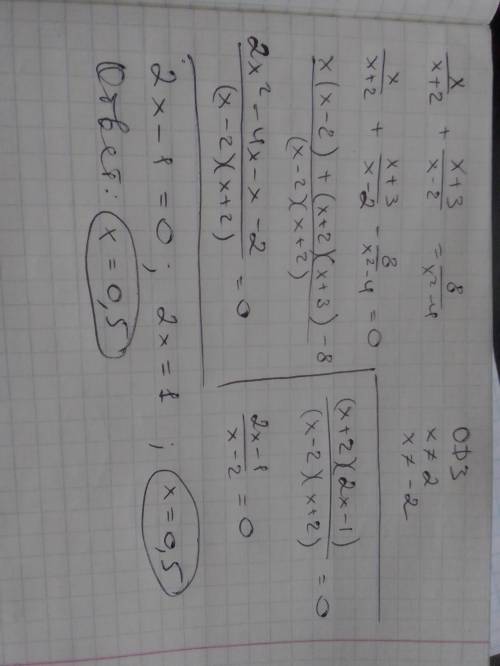 x/(x+2) + (x+3)/(x-2) = 8/(x²-4)
ОДЗ
x ≠ 2
x ≠ -2
x/(x+2) + (x+3)/(x-2) - 8/(x²-4) = 0
(x(x-2) + (x+2)(x+3) - 8)/((x-2)(x+2))
(2x² - 4x - x - 2)/((x-2)(x+2)) = 0
((x+2)(2x-1))/((x-2)(x+2)) = 0
(2x-1)/(x-2) = 0
2x-1=0; 2x=1; x=0,5
Ответ: x=0,5